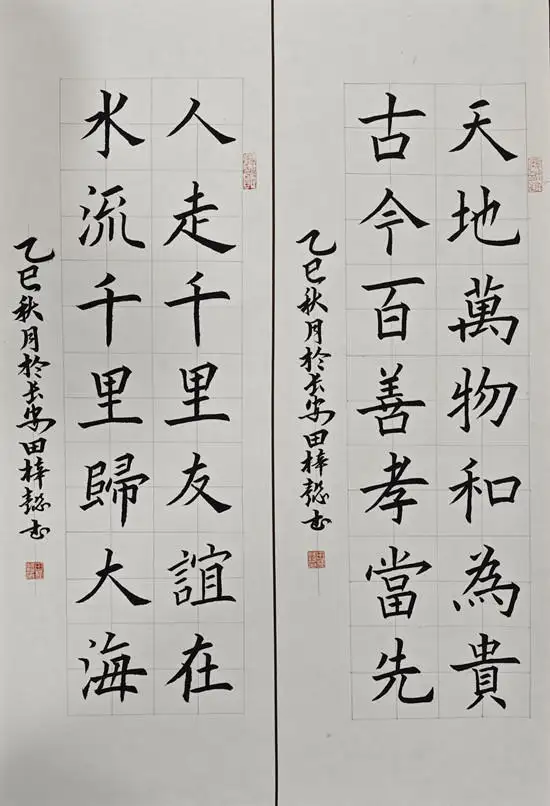 天地萬物和為貴
古今百善孝當先
乙巳秋月於长安田梓懿书
人走千里友誼在
水流千里歸大海
乙巳秋月於长安田梓懿书